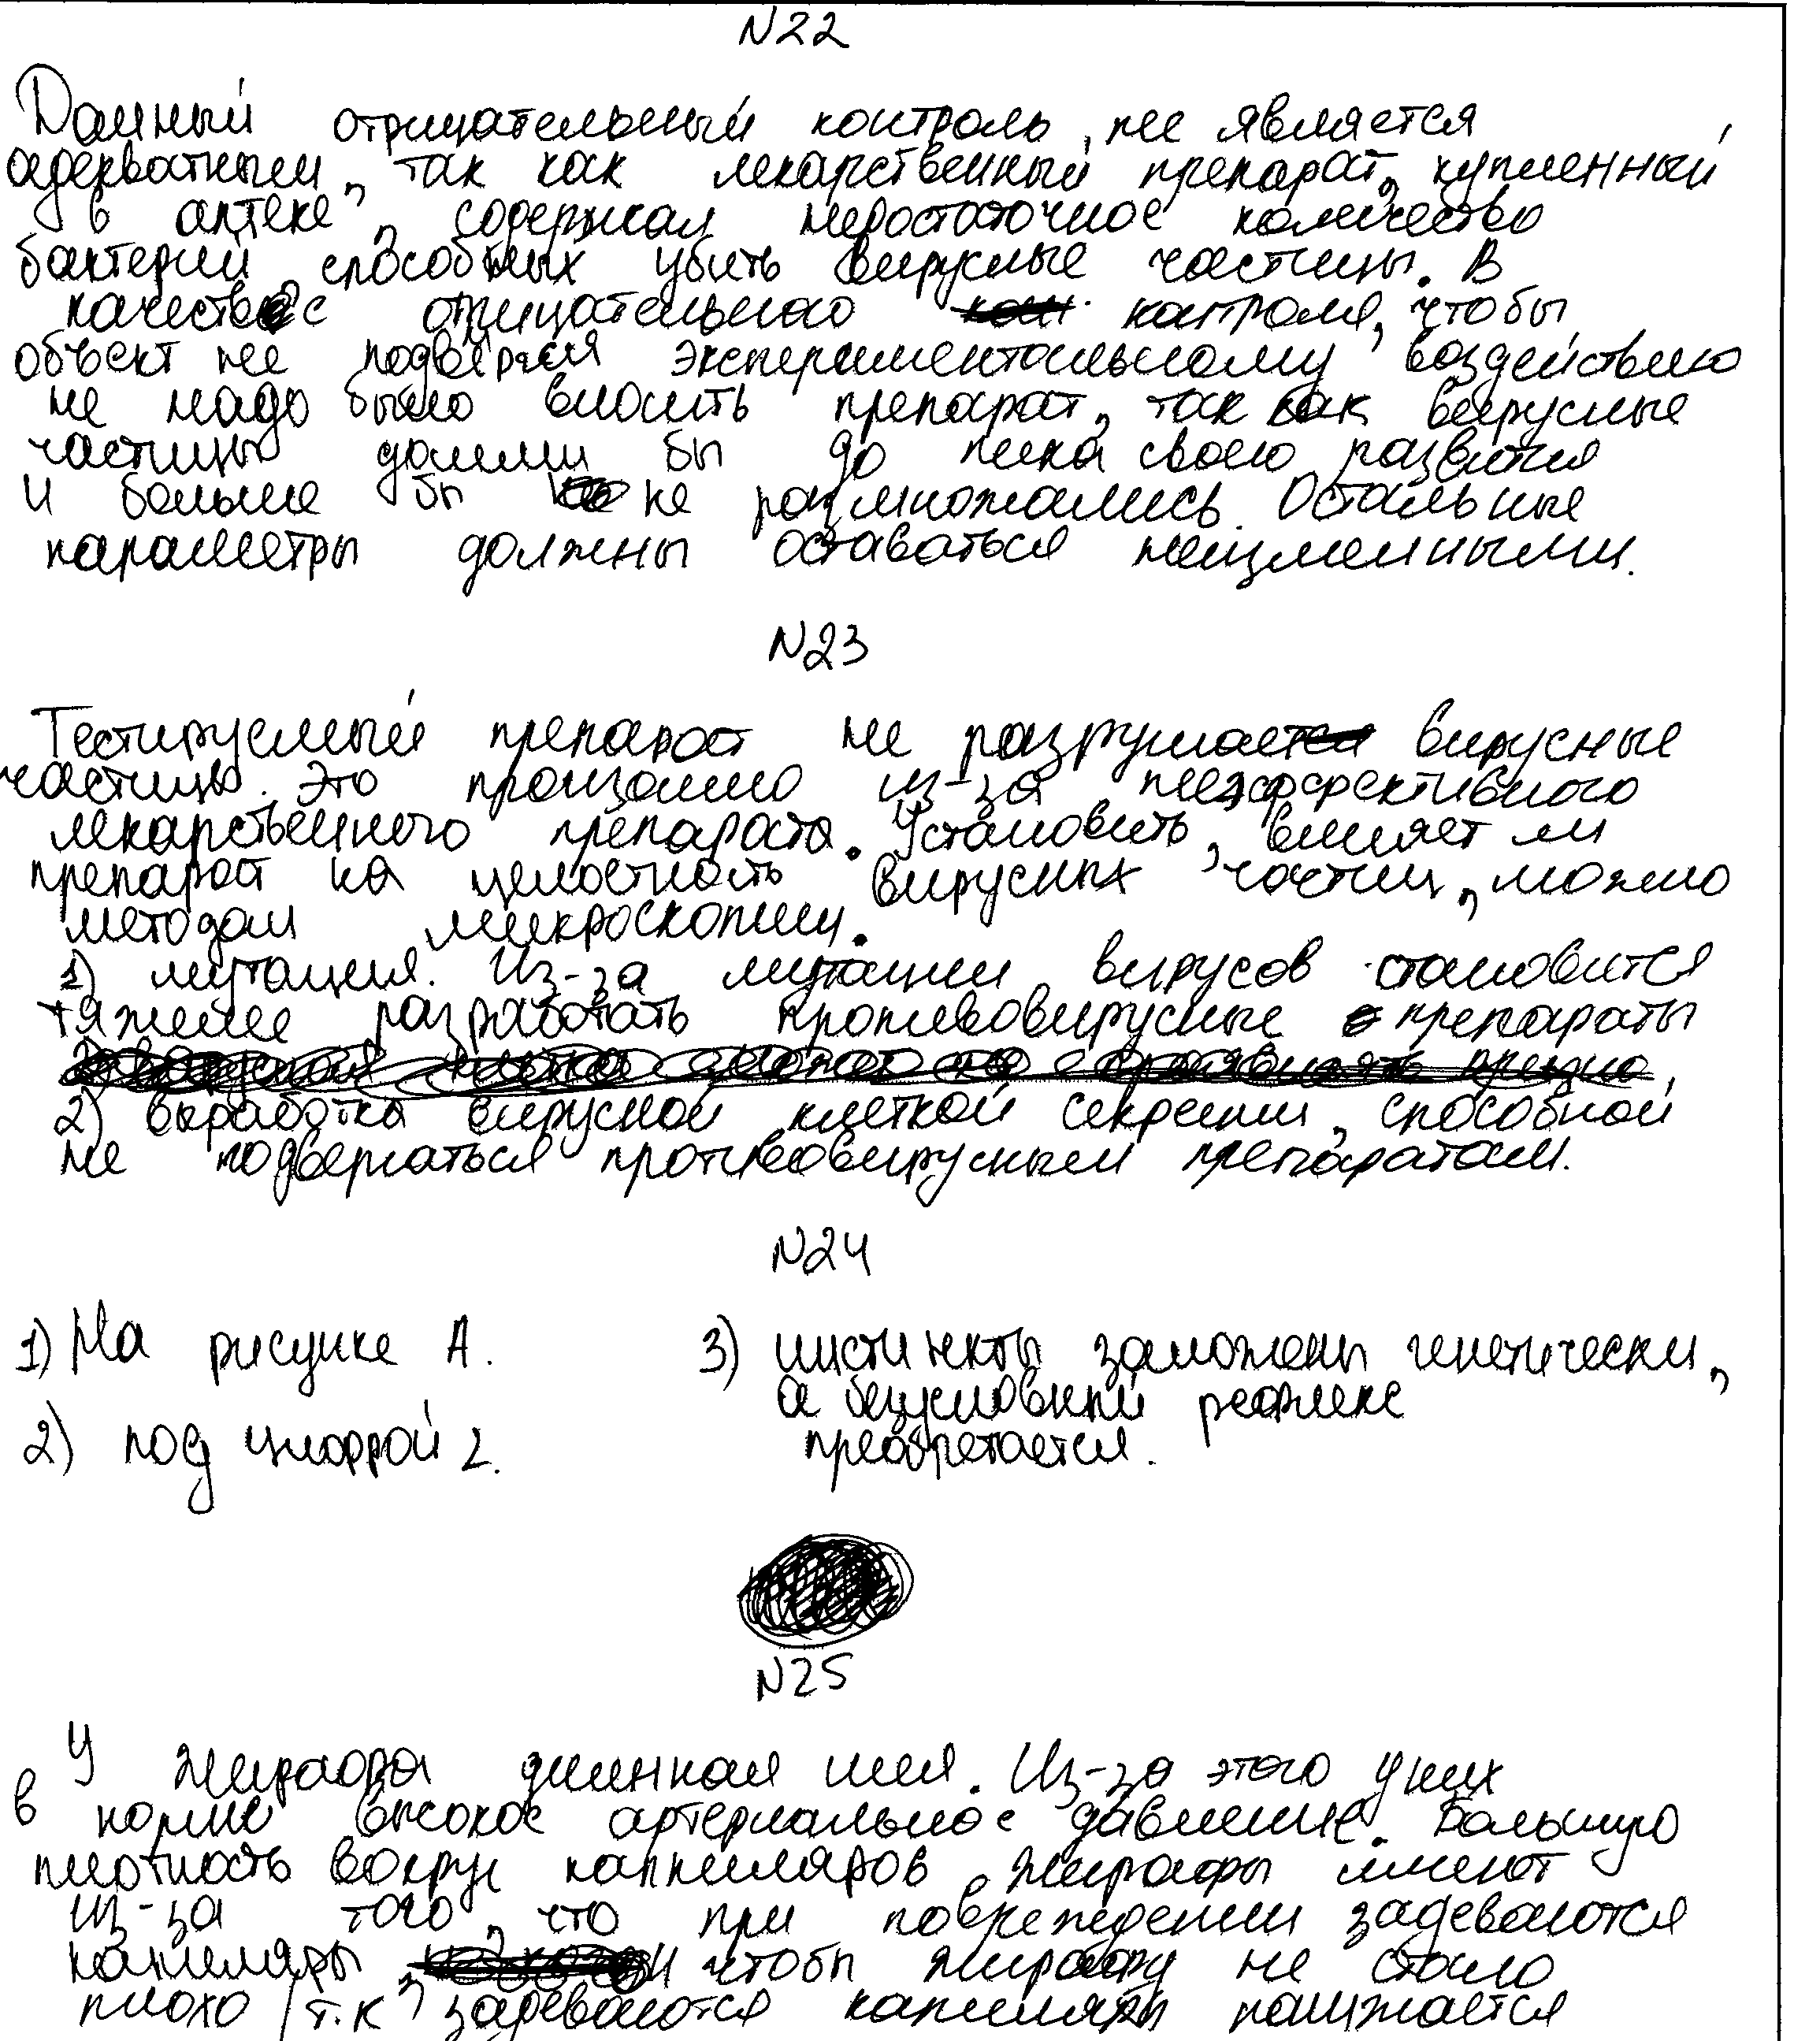 N22
Данный отрицательный контроль, не является
адекватным, так как лекарственный препарат, купленный
в аптеке, содержал недостаточное количество
бактерий, способных убить вирусные частицы. В
качестве отрицательного контроля, чтобы
объект не подвергался экспериментальному воздействию
не надо было вносить препарат, так как вирусные
частицы дошли бы до пика своего развития
и больше бы не размножались. Остальные
параметры должны оставаться неизменными.
N23
Тестируемый препарат не разрушает вирусные
частицы. Это произошло из-за неэффективного
лекарственного препарата. Установить, влияет ли
препарат на целостность вирусных частиц, можно
методом микроскопии.
1) мутация. Из-за мутации вирусов становится
тяжелее разработать противовирусные препараты
2) выработка вирусной клеткой секреции, способной
не подвергаться противовирусным препаратам.
N24
1) На рисунке А.
2) под цифрой 2.
3) инстинкты заложены генетически,
а безусловный рефлекс
преобретается.
N25
У жирафа длинная шея. Из-за этого у них
в норме высокое артериальное давление. Большую
плотность вокруг капилляров жирафы имеют
из-за того, что при повреждении задеваются
капиляры, и чтобы жирафу не стало
плохо, т.к задеваются капиляры понижается